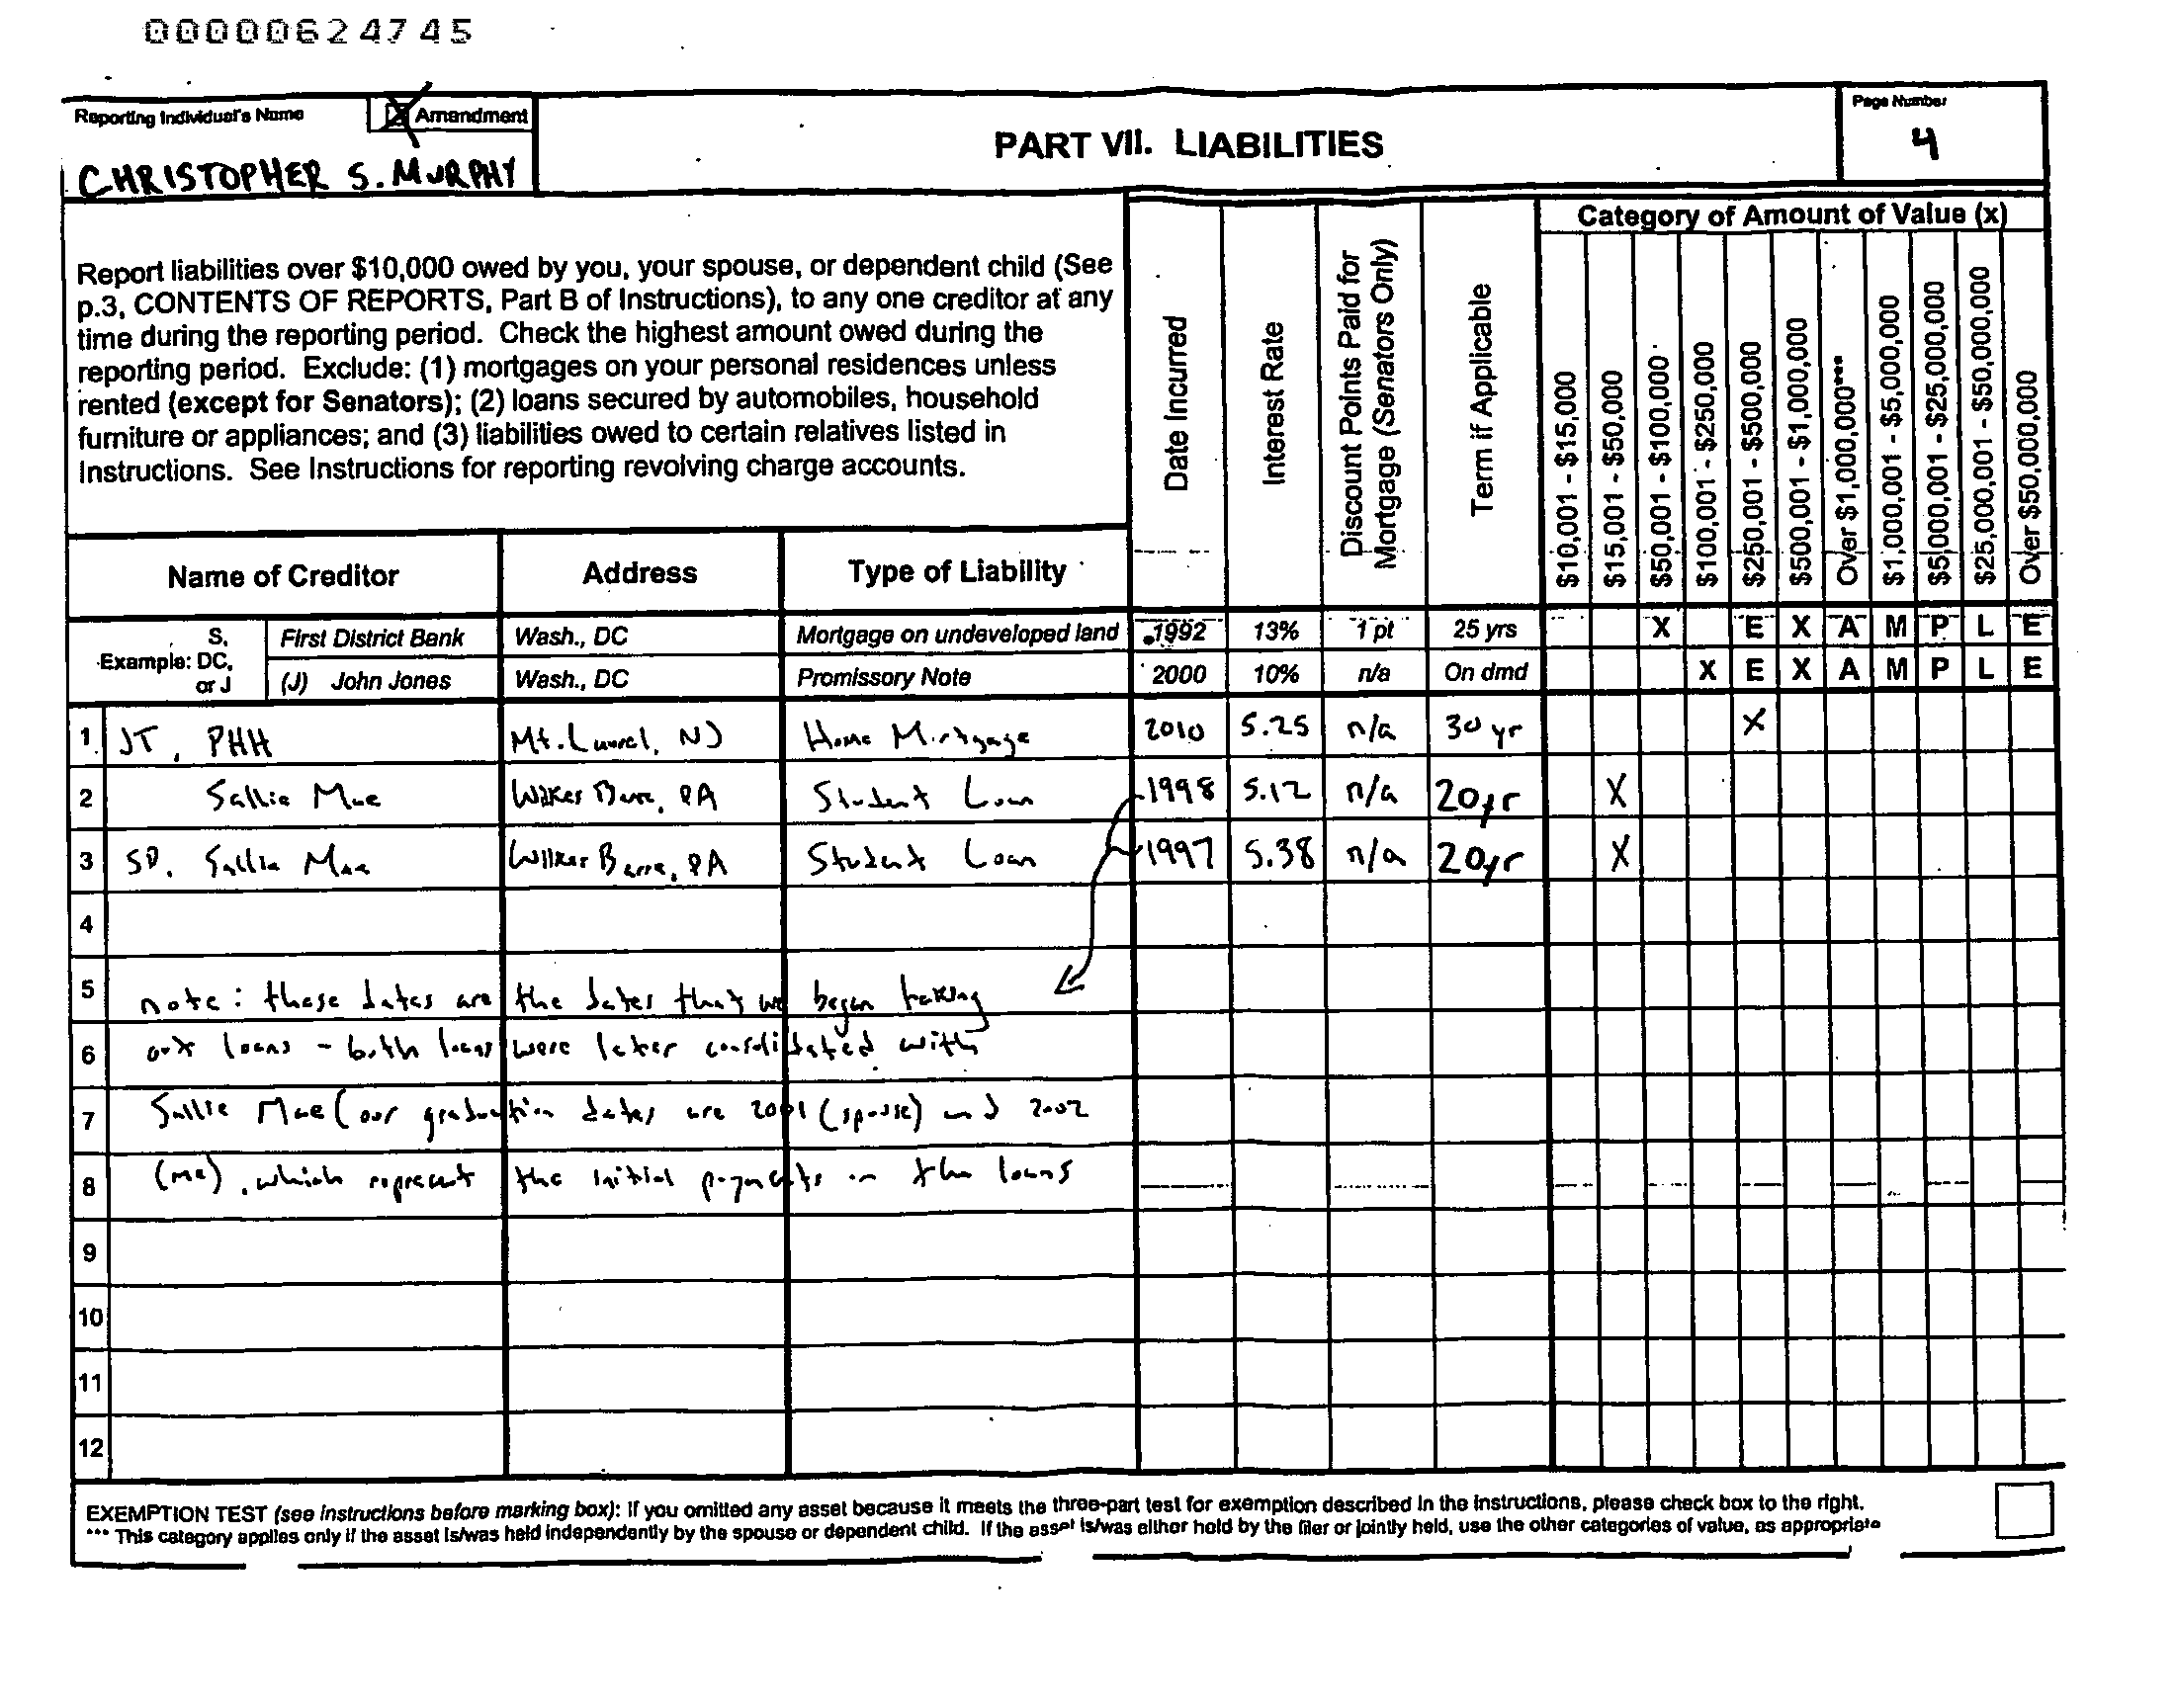 00000624745
Reporting Individual's Name
Amendment
CHRISTOPHER S. MURPHY
PART VII. LIABILITIES
Page Number
4
Report liabilities over $10,000 owed by you, your spouse, or dependent child (See
p.3, CONTENTS OF REPORTS, Part B of Instructions), to any one creditor at any
time during the reporting period. Check the highest amount owed during the
reporting period. Exclude: (1) mortgages on your personal residences unless
rented (except for Senators); (2) loans secured by automobiles, household
furniture or appliances; and (3) liabilities owed to certain relatives listed in
Instructions. See Instructions for reporting revolving charge accounts.
Date Incurred
Interest Rate
Discount Points Paid for
Mortgage (Senators Only)
Term if Applicable
Category of Amount of Value (x)
$10,001 - $15,000
$15,001 - $50,000
$50,001 - $100,000
$100,001 - $250,000
$250,001 - $500,000
$500,001 - $1,000,000
Over $1,000,000***
$1,000,001 - $5,000,000
$5,000,001 - $25,000,000
$25,000,001 - $50,000,000
Over $50,000,000
Name of Creditor Address Type of Liability
Example: S, DC, or J
First District Bank Wash., DC Mortgage on undeveloped land 1992 13% 1 pt 25 yrs X E X A M P L E
(J) John Jones Wash., DC Promissory Note 2000 10% n/a On dmd X E X A M P L E
1 JT, PHH Mt. Laurel, NJ Home Mortgage 2010 5.25 n/a 30 yr X
2 Sallie Mae Wilkes Barre, PA Student Loan 1998 5.12 n/a 20yr X
3 SP. Sallie Mae Wilkes Barre, PA Student Loan 1997 5.38 n/a 20yr X
4
5 note: these dates are the dates that we began taking
6 out loans - both loans were later consolidated with
7 Sallie Mae (our graduation dates are 2001 (spouse) and 2002
8 (me), which represent the initial payments on the loans
9
10
11
12
EXEMPTION TEST (see instructions before marking box): If you omitted any asset because it meets the three-part test for exemption described in the instructions, please check box to the right.
*** This category applies only if the asset is/was held independently by the spouse or dependent child. If the asset is/was either held by the filer or jointly held, use the other categories of value, as appropriate